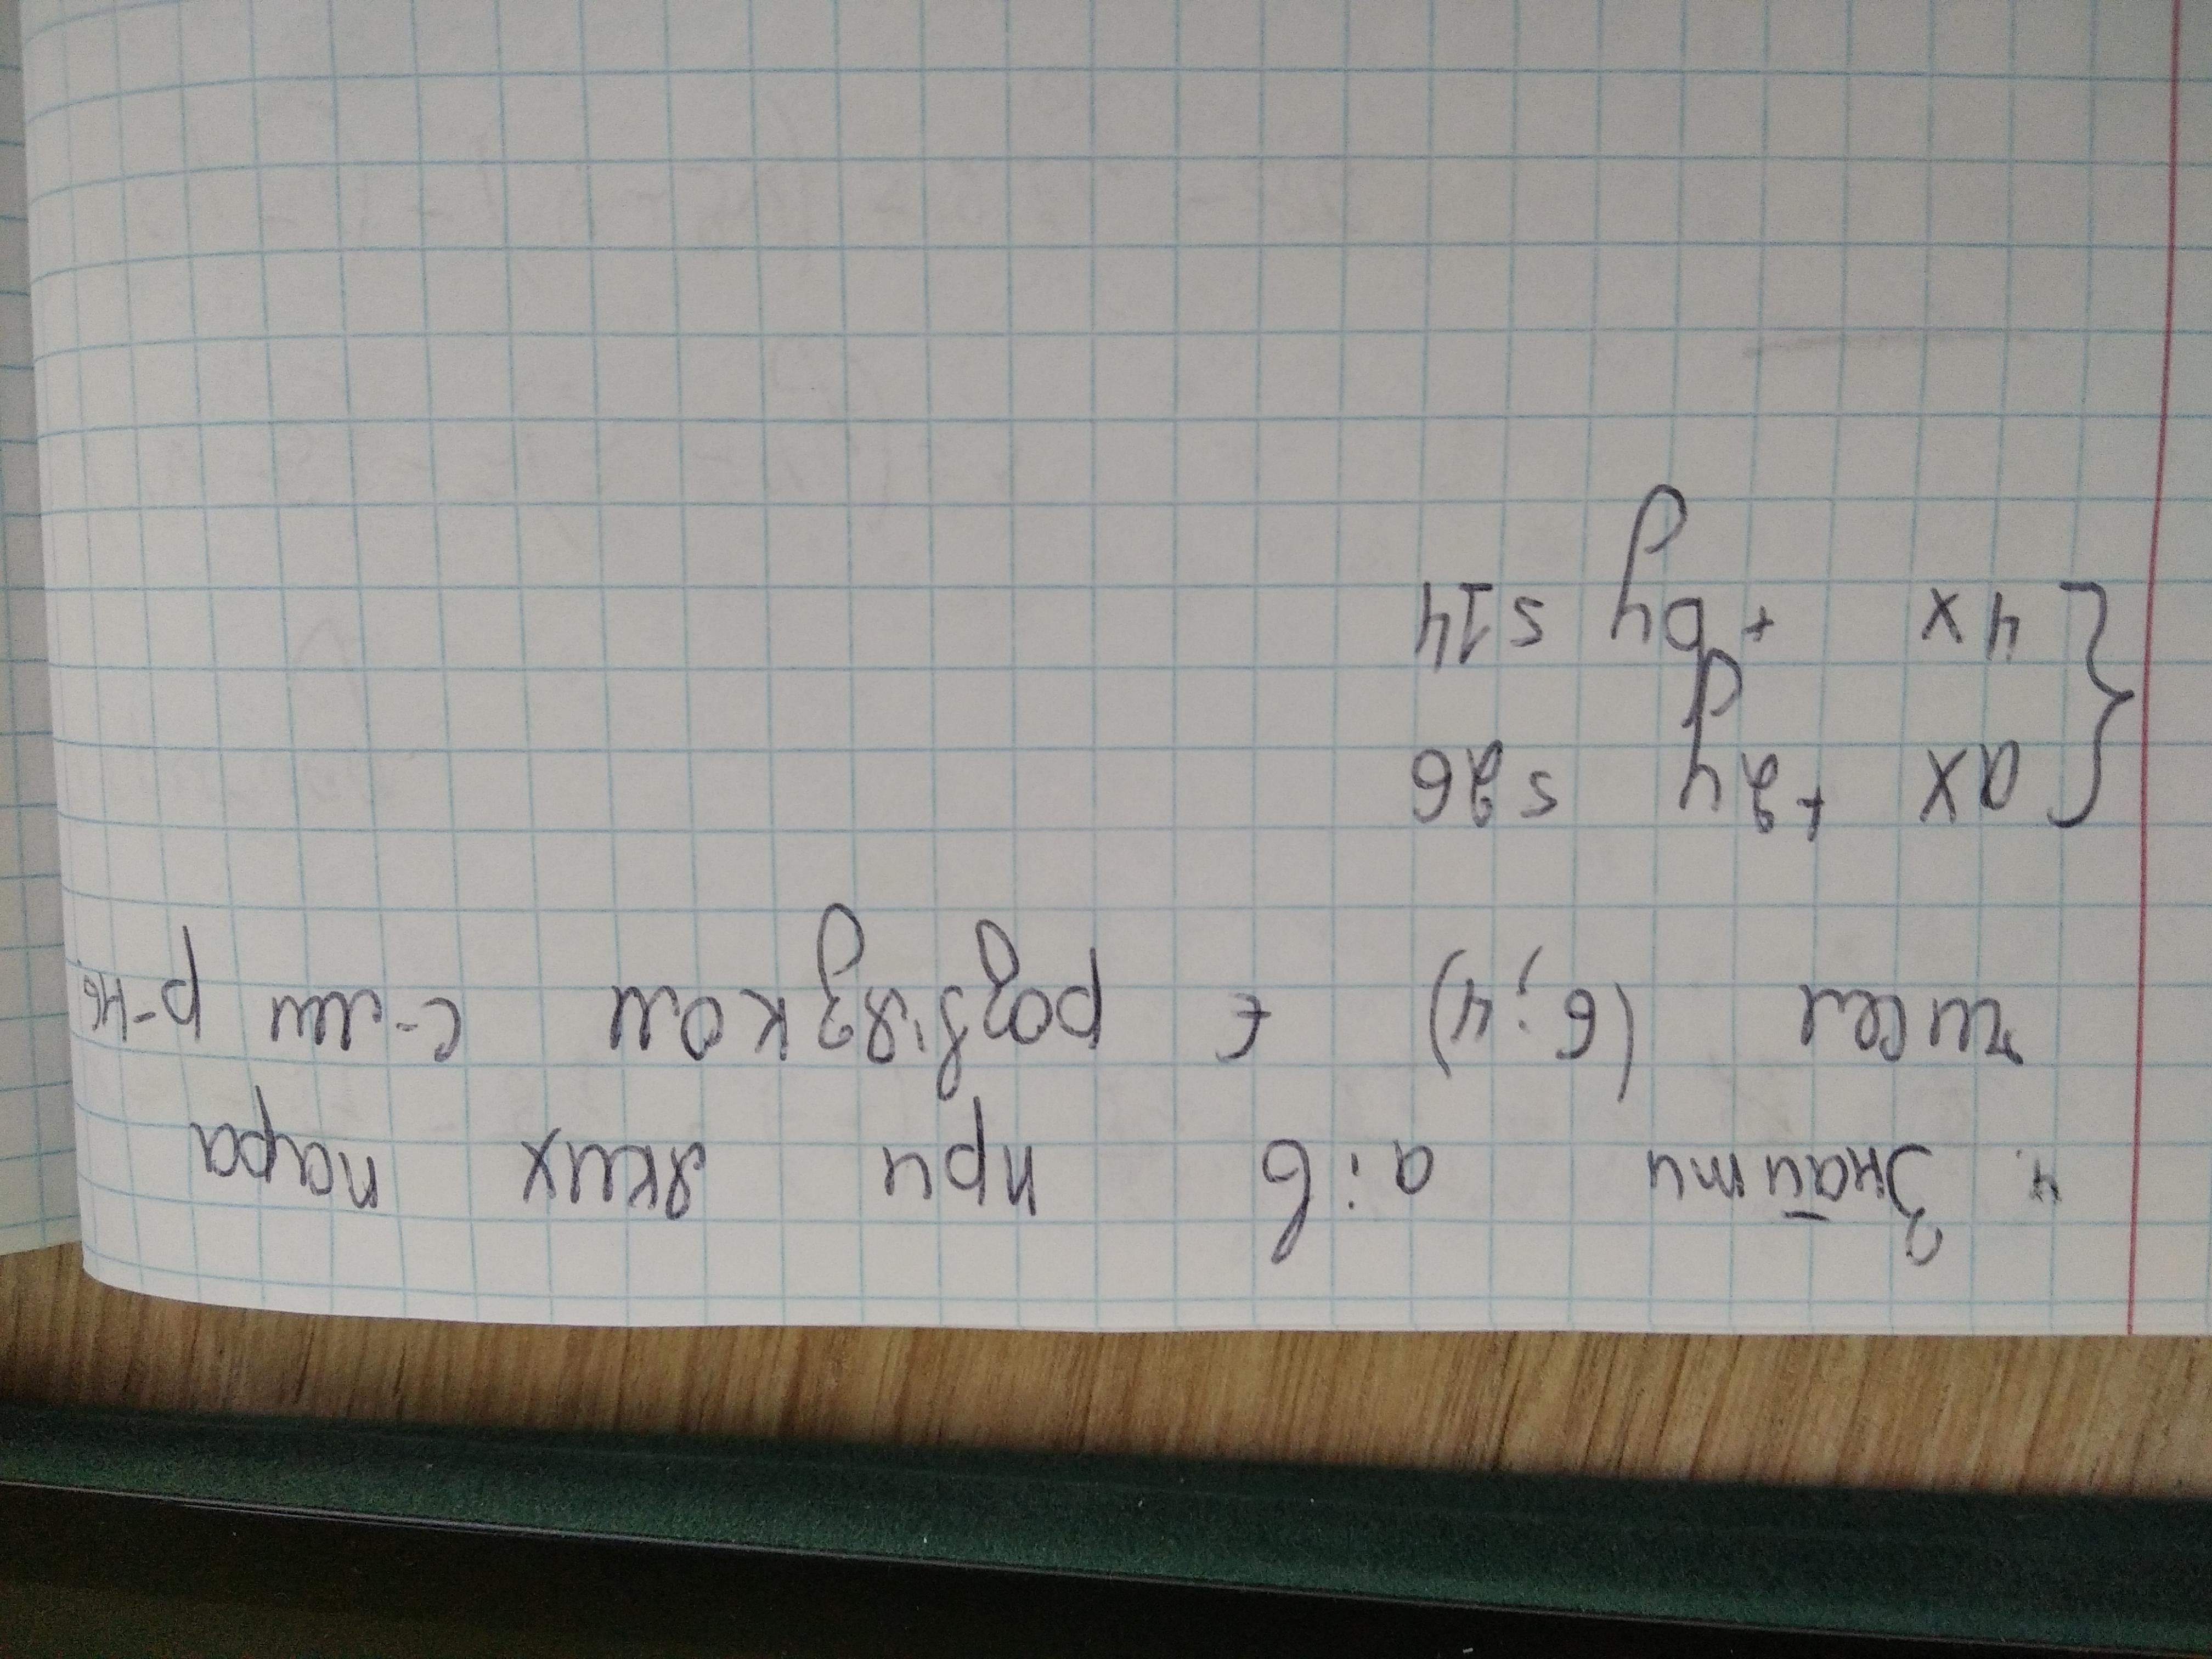 4. Знайти a і b при яких пара
чисел (6; 4) є розвіязком с-ми р-нь
{ ax + 2y = 26
4x + by = 14